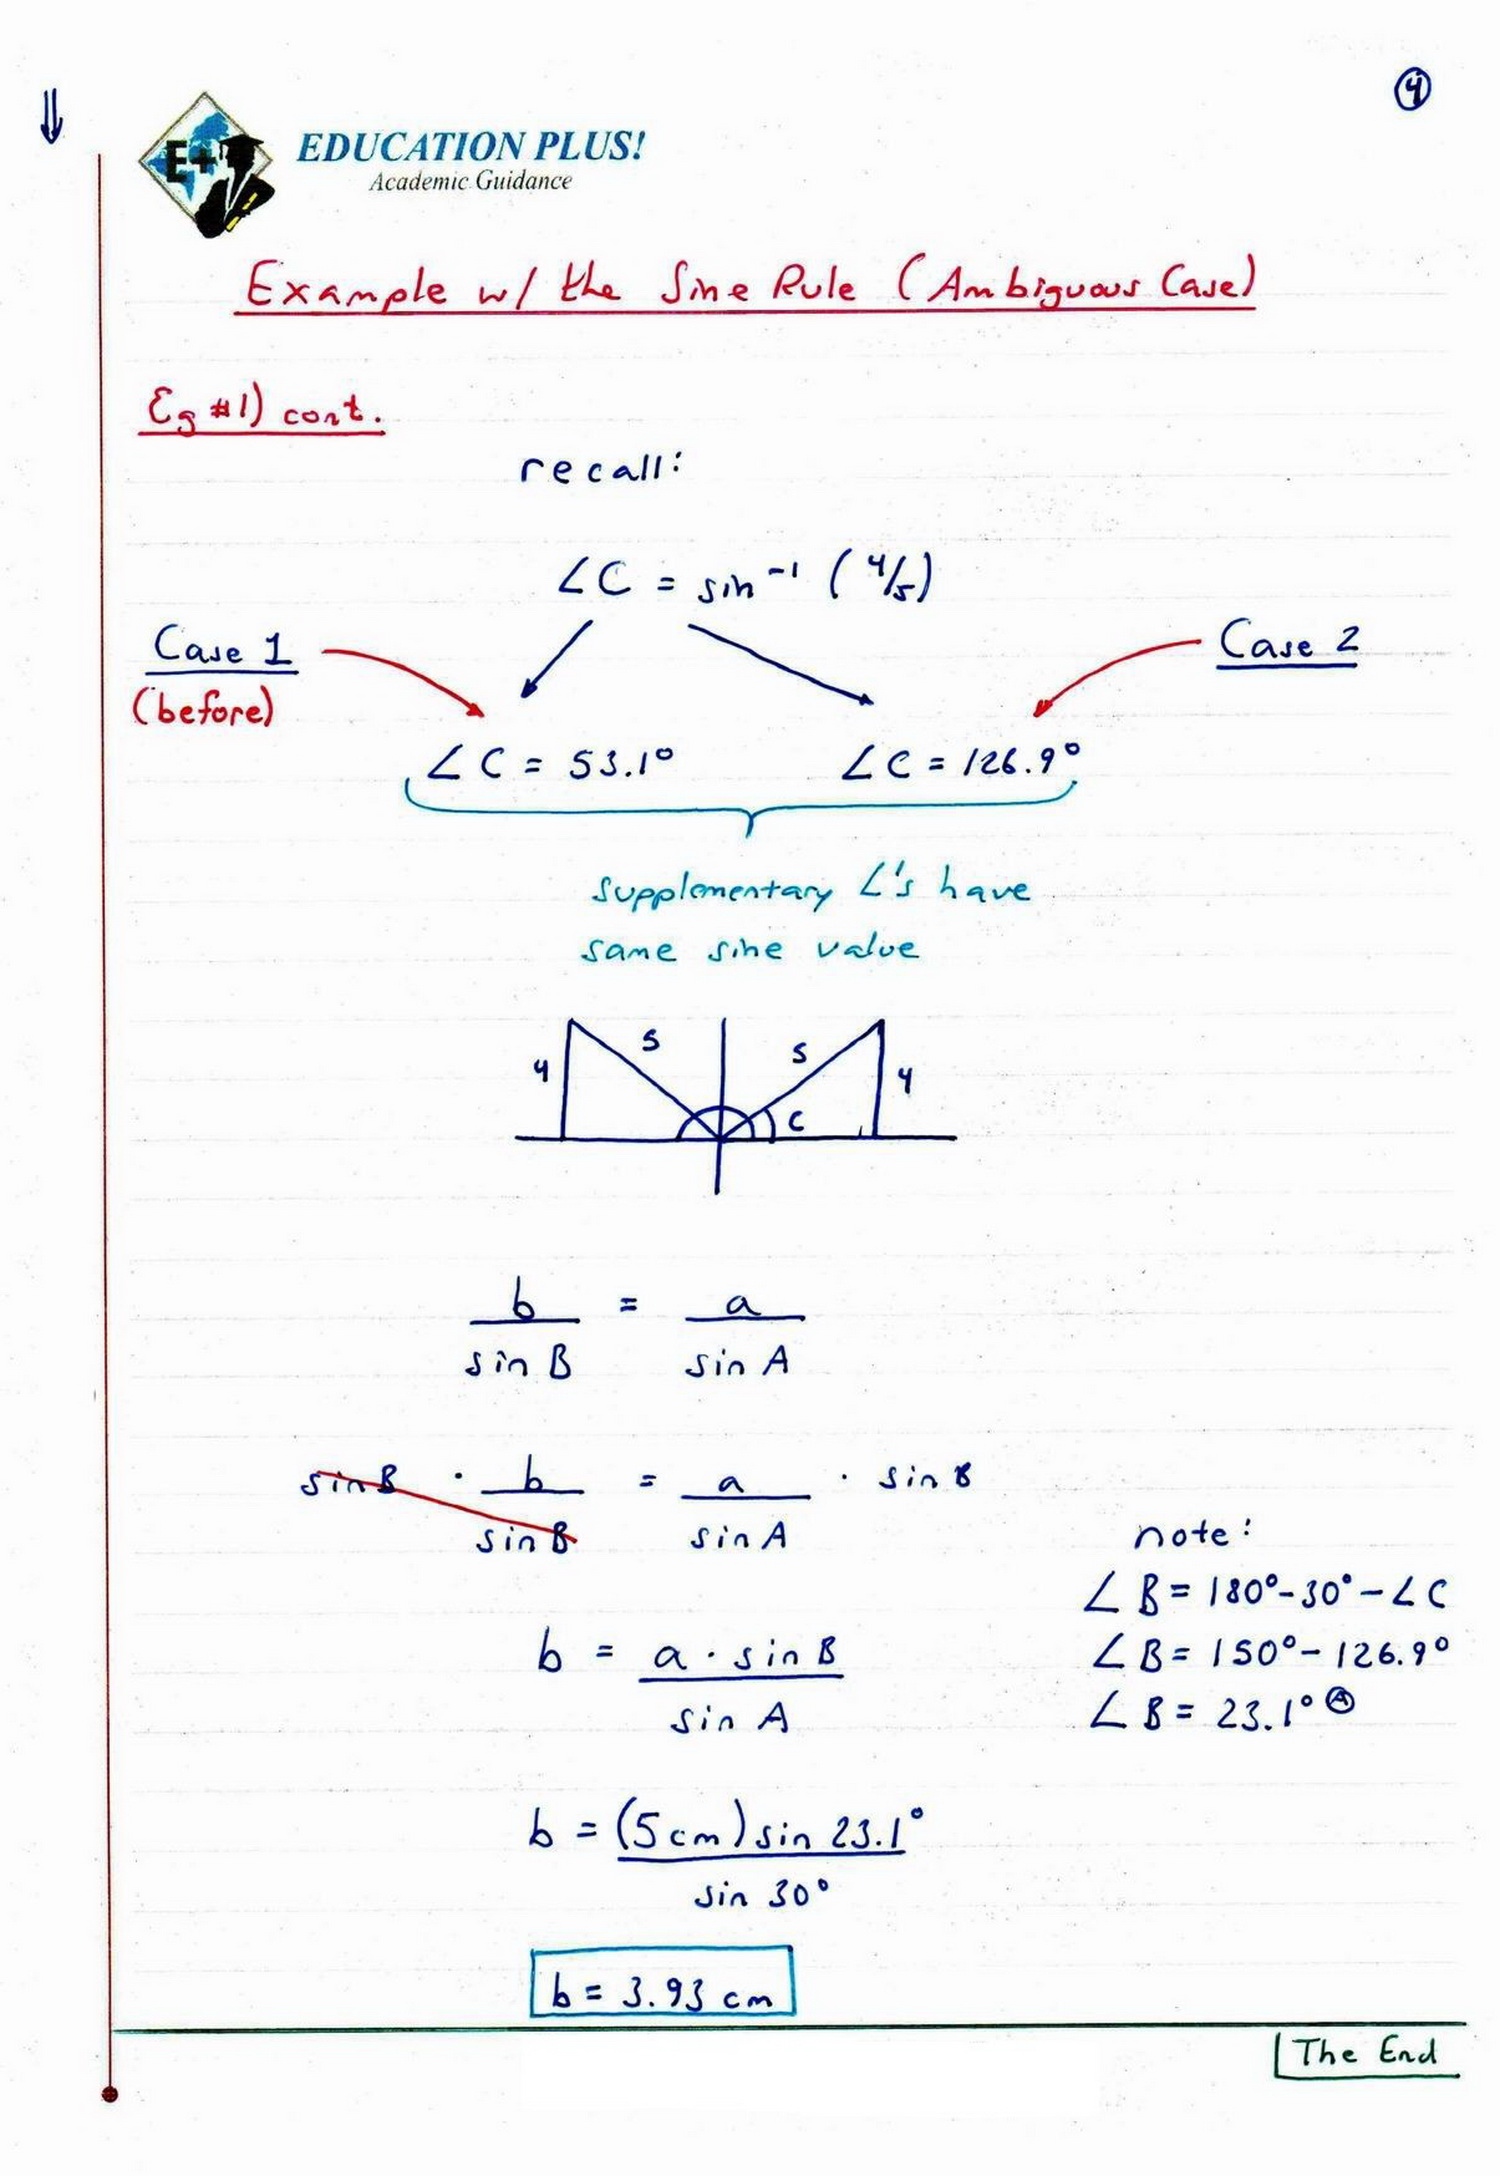 ④
⇓
E+
EDUCATION PLUS!
Academic Guidance
Example w/ the Sine Rule (Ambiguous Case)
Eg #1) cont.
recall:
∠C = sin⁻¹ (4/5)
Case 1
(before)
Case 2
∠C = 53.1°
∠C = 126.9°
supplementary ∠'s have
same sine value
4 5 5 4
C
b/sin B = a/sin A
sin B · b/sin B = a/sin A · sin B
b = a · sin B/sin A
note:
∠B = 180° - 30° - ∠C
∠B = 150° - 126.9°
∠B = 23.1° Ⓐ
b = (5cm) sin 23.1°/sin 30°
b = 3.93 cm
The End